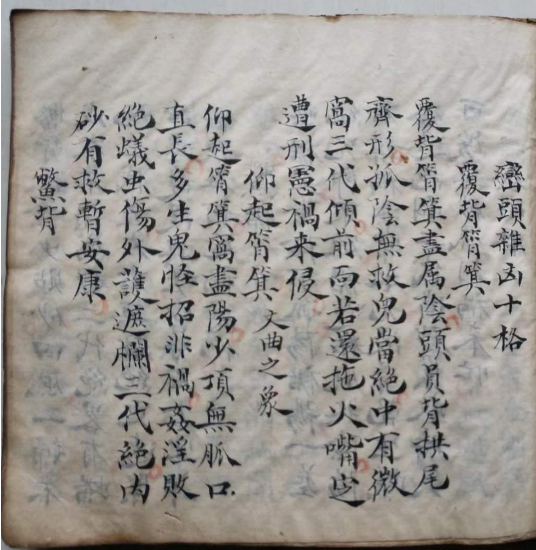 巒頭雜凶十格
覆背筲箕
覆背筲箕盡属陰頭員背拱尾
齊形孤陰無救兒當絕中有微
窩三代傾前面若還拖火嘴定
遭刑憲禍来侵
仰起筲箕 文曲之象
仰起筲箕窩盡陽少頂無脈口
直長多生鬼怪招非禍姦淫敗
絕蟻虫傷外護遮欄三代絕内
砂有救暫安康
鱉背